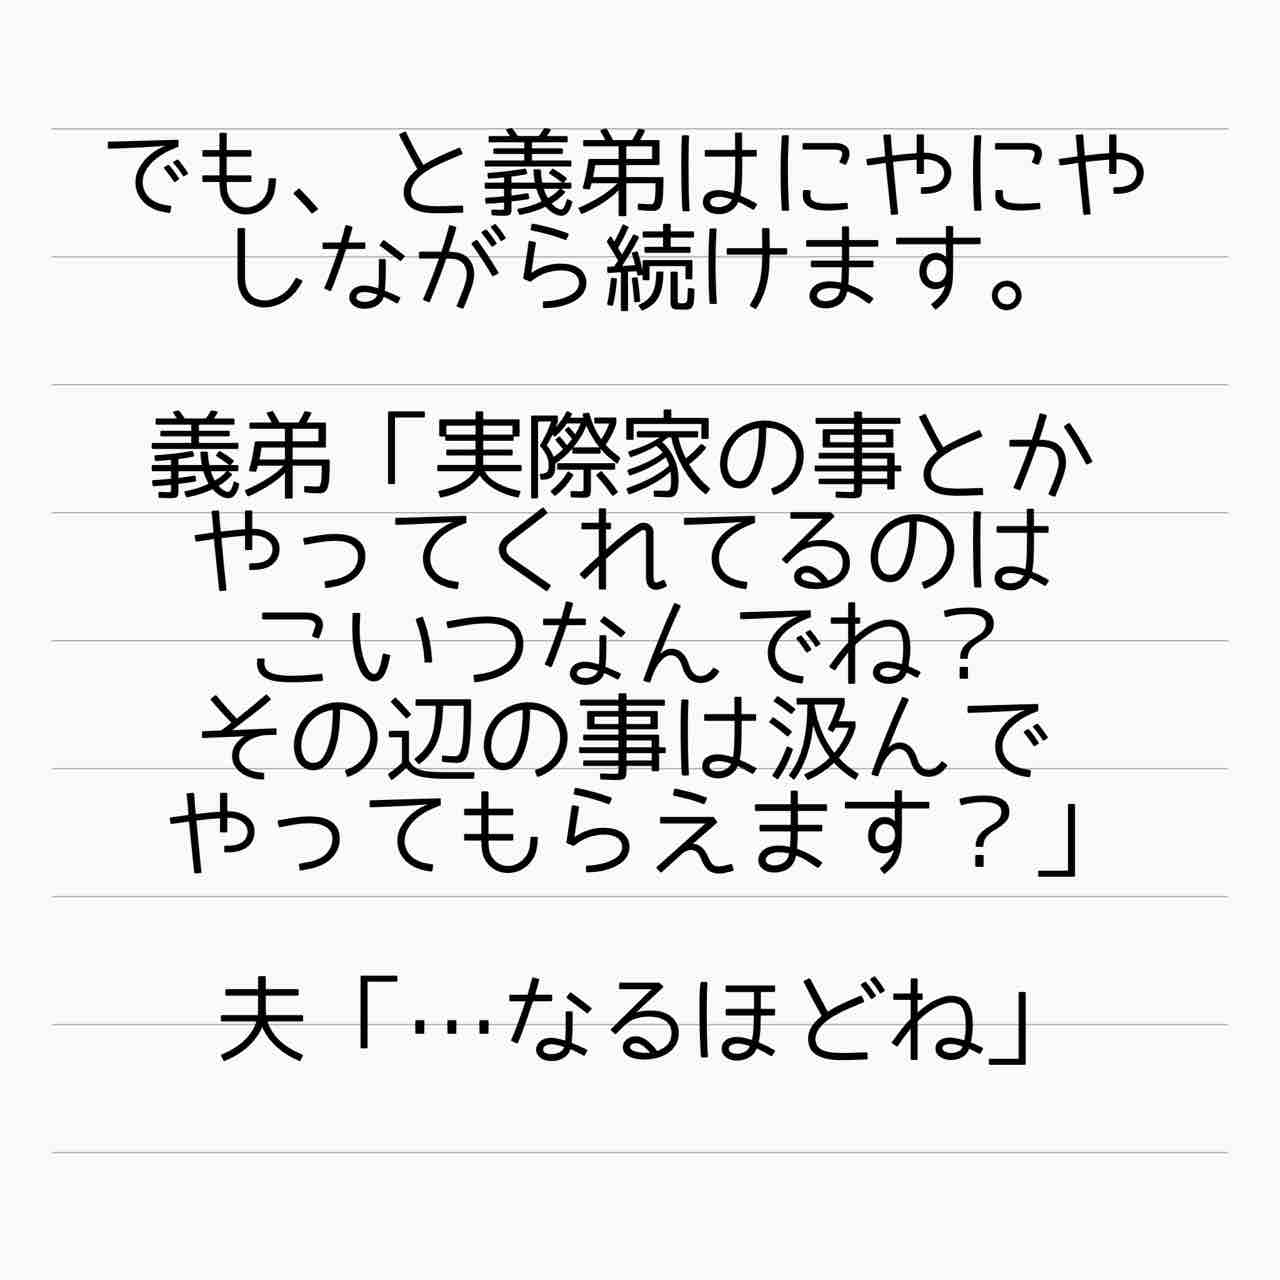 でも、と義弟はにやにや
しながら続けます。
義弟「実際家の事とか
やってくれてるのは
こいつなんでね？
その辺の事は汲んで
やってもらえます？」
夫「…なるほどね」